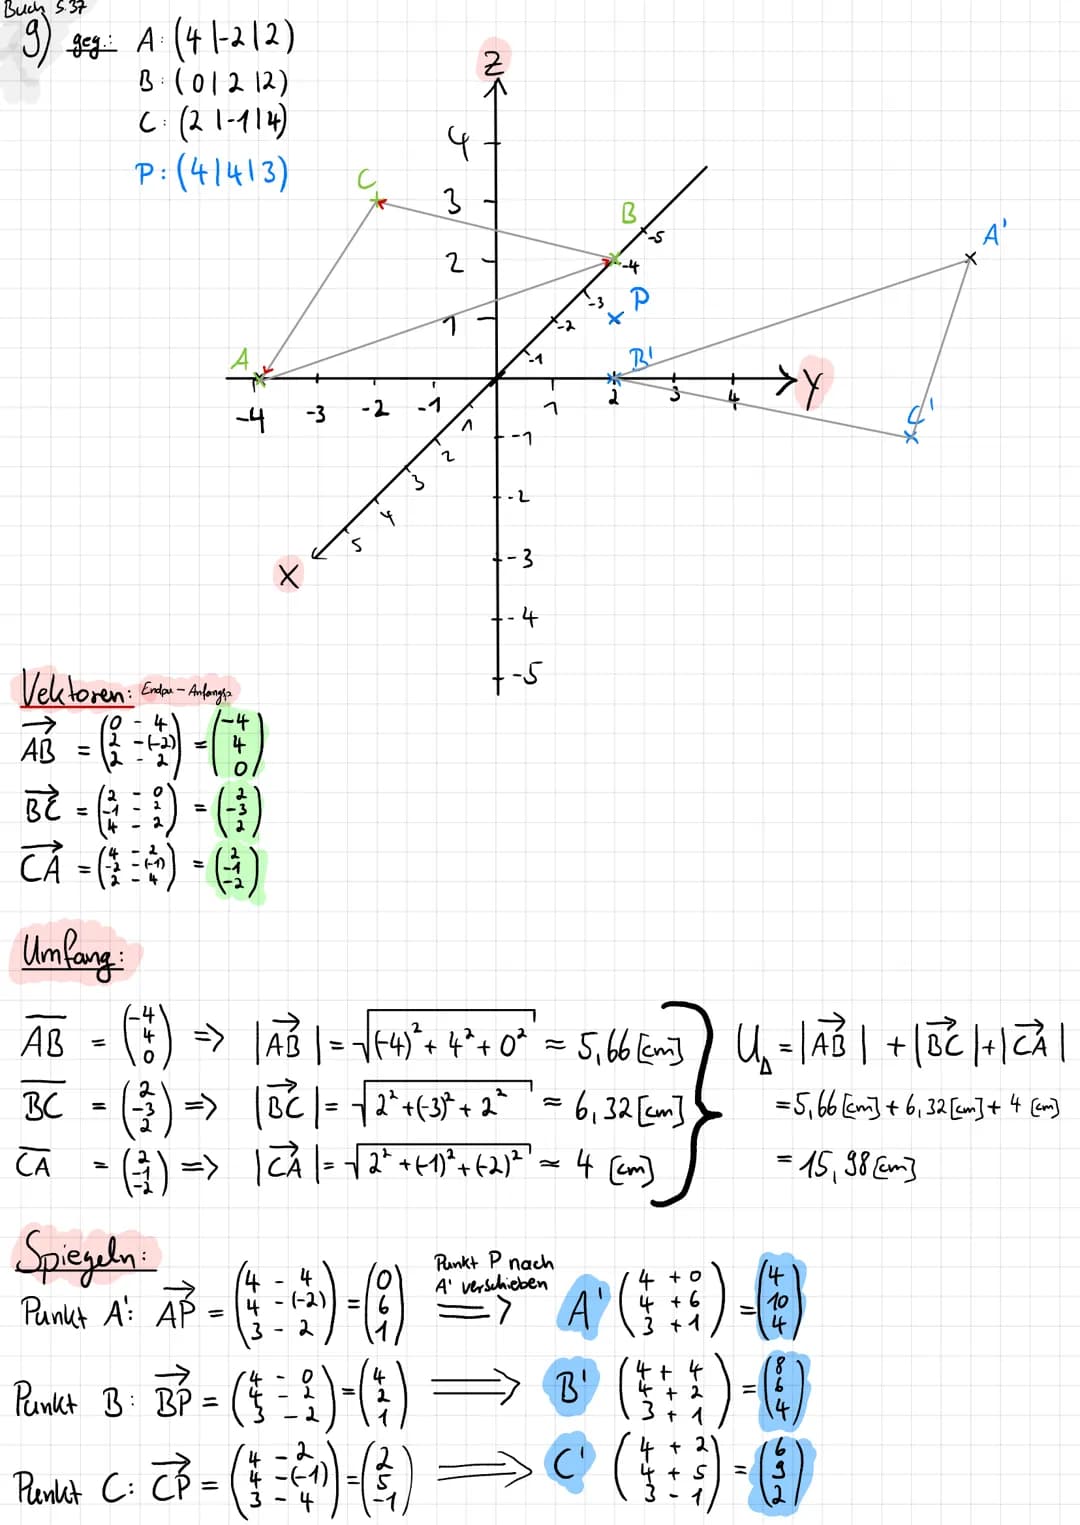 Buch S.37
9) geg.: A: (4 |-2|2)
B: (0|2|2)
C: (2|-1|4)
P: (4|4|3)
Z
4
3
2
1
C
B
-5
-4
-3
-2
-1
P
A'
A
B'
Y
-4 -3 -2 -1
1 2 3 4
C'
1
2
3
4
5
X
-1
-2
-3
-4
-5
Vektoren: Endpu - Anfangsp.
AB = (0 - 4 / 2 - (-2) / 2 - 2) = (-4 / 4 / 0)
BC = (2 - 0 / -1 - 2 / 4 - 2) = (2 / -3 / 2)
CA = (4 - 2 / -2 - (-1) / 2 - 4) = (2 / -1 / -2)
Umfang:
AB = (-4 / 4 / 0) => |AB| = √(-4)² + 4² + 0² ≈ 5,66 [cm]
BC = (2 / -3 / 2) => |BC| = √2² + (-3)² + 2² ≈ 6,32 [cm]
CA = (2 / -1 / -2) => |CA| = √2² + (-1)² + (-2)² ≈ 4 [cm]
U△ = |AB| + |BC| + |CA|
= 5,66 [cm] + 6,32 [cm] + 4 [cm]
= 15,98 [cm]
Spiegeln:
Punkt P nach
A' verschieben
Punkt A': AP = (4 - 4 / 4 - (-2) / 3 - 2) = (0 / 6 / 1) => A' (4 + 0 / 4 + 6 / 3 + 1) = (4 / 10 / 4)
Punkt B: BP = (4 - 0 / 4 - 2 / 3 - 2) = (4 / 2 / 1) => B' (4 + 4 / 4 + 2 / 3 + 1) = (8 / 6 / 4)
Punkt C: CP = (4 - 2 / 4 - (-1) / 3 - 4) = (2 / 5 / -1) => C' (4 + 2 / 4 + 5 / 3 - 1) = (6 / 9 / 2)